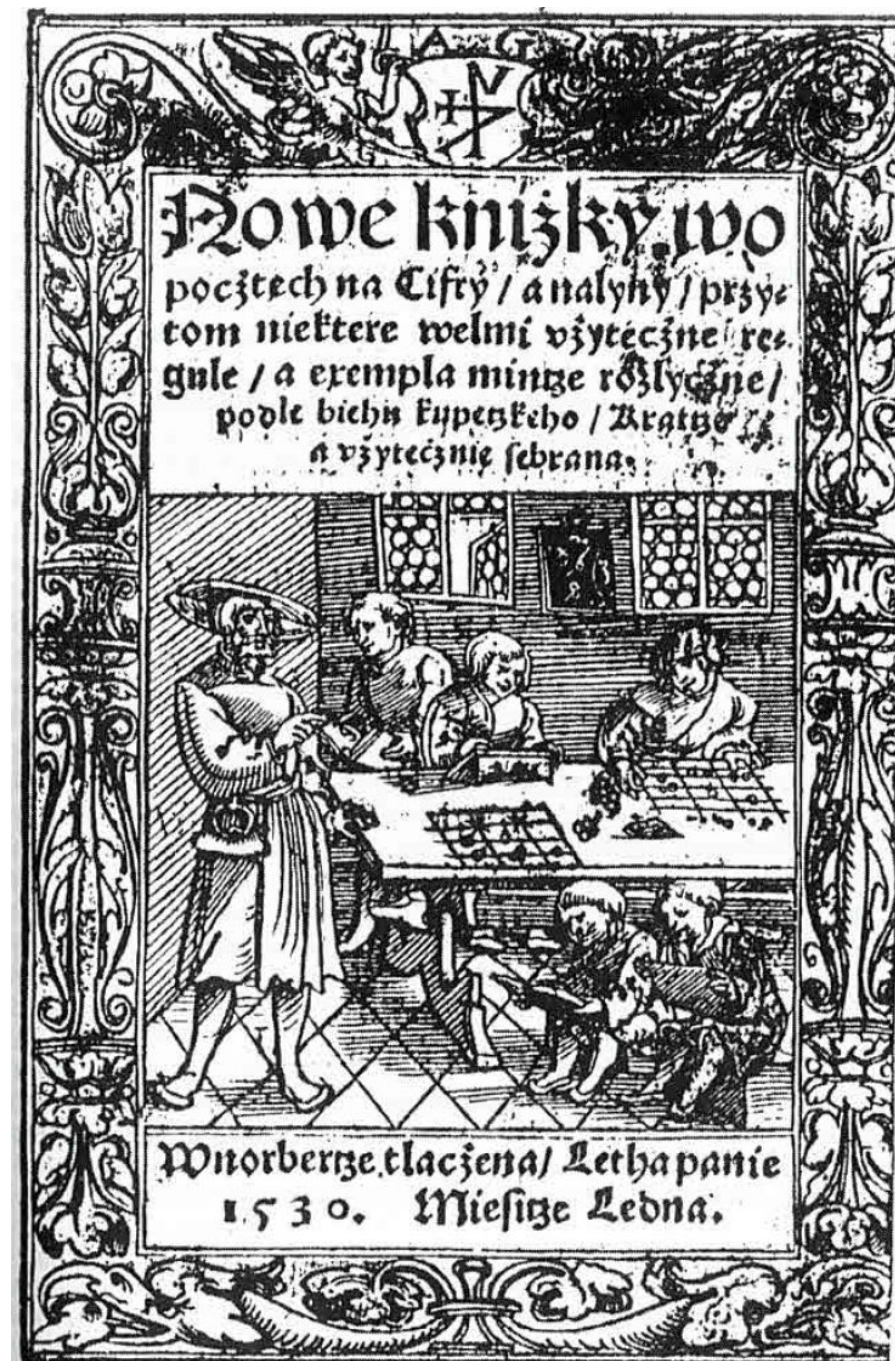 A G
Nowe knižky, wo
pocžtech na Cifry / a nalyny / przy⸗
tom niektere welmi vžytecžne re⸗
gule / a exempla mintze rozlycžne /
podle biehu kupetzkeho / Kratze
a vžytecžnie sebrana.
Wnorbertze tlacžena / Letha panie
1530. Miesitze Ledna.